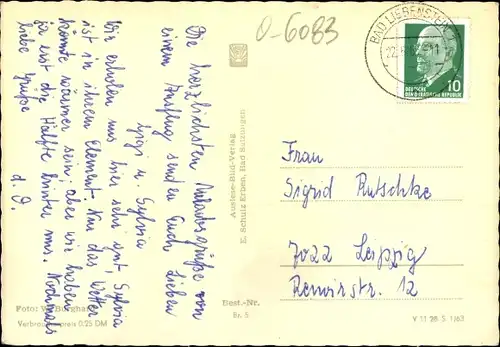 O-6083
BAD LIEBENSTEIN
10
DEUTSCHE
DEMOKRATISCHE REPUBLIK
Die herzlichsten Urlaubsgrüße von
einem Ausflug senden Euch Lieben
Gigi u. Sylvia
Wir erholen uns hier sehr gut, Sylvia
ist in ihrem Element. Nur das Wetter
könnte wärmer sein, aber wir haben
ja erst die Hälfte hinter uns. Nochmals
liebe Grüße
d. O.
Auslese-Bild-Verlag
E. Schulz Erben, Bad Salzungen
Frau
Sigrid Rutschke
7022 Leipzig
Renoirstr. 12
Foto: W. Burghardt
Verbraucherpreis 0,25 DM
Best.-Nr.
Br. 5
V 11 28 S 1/63